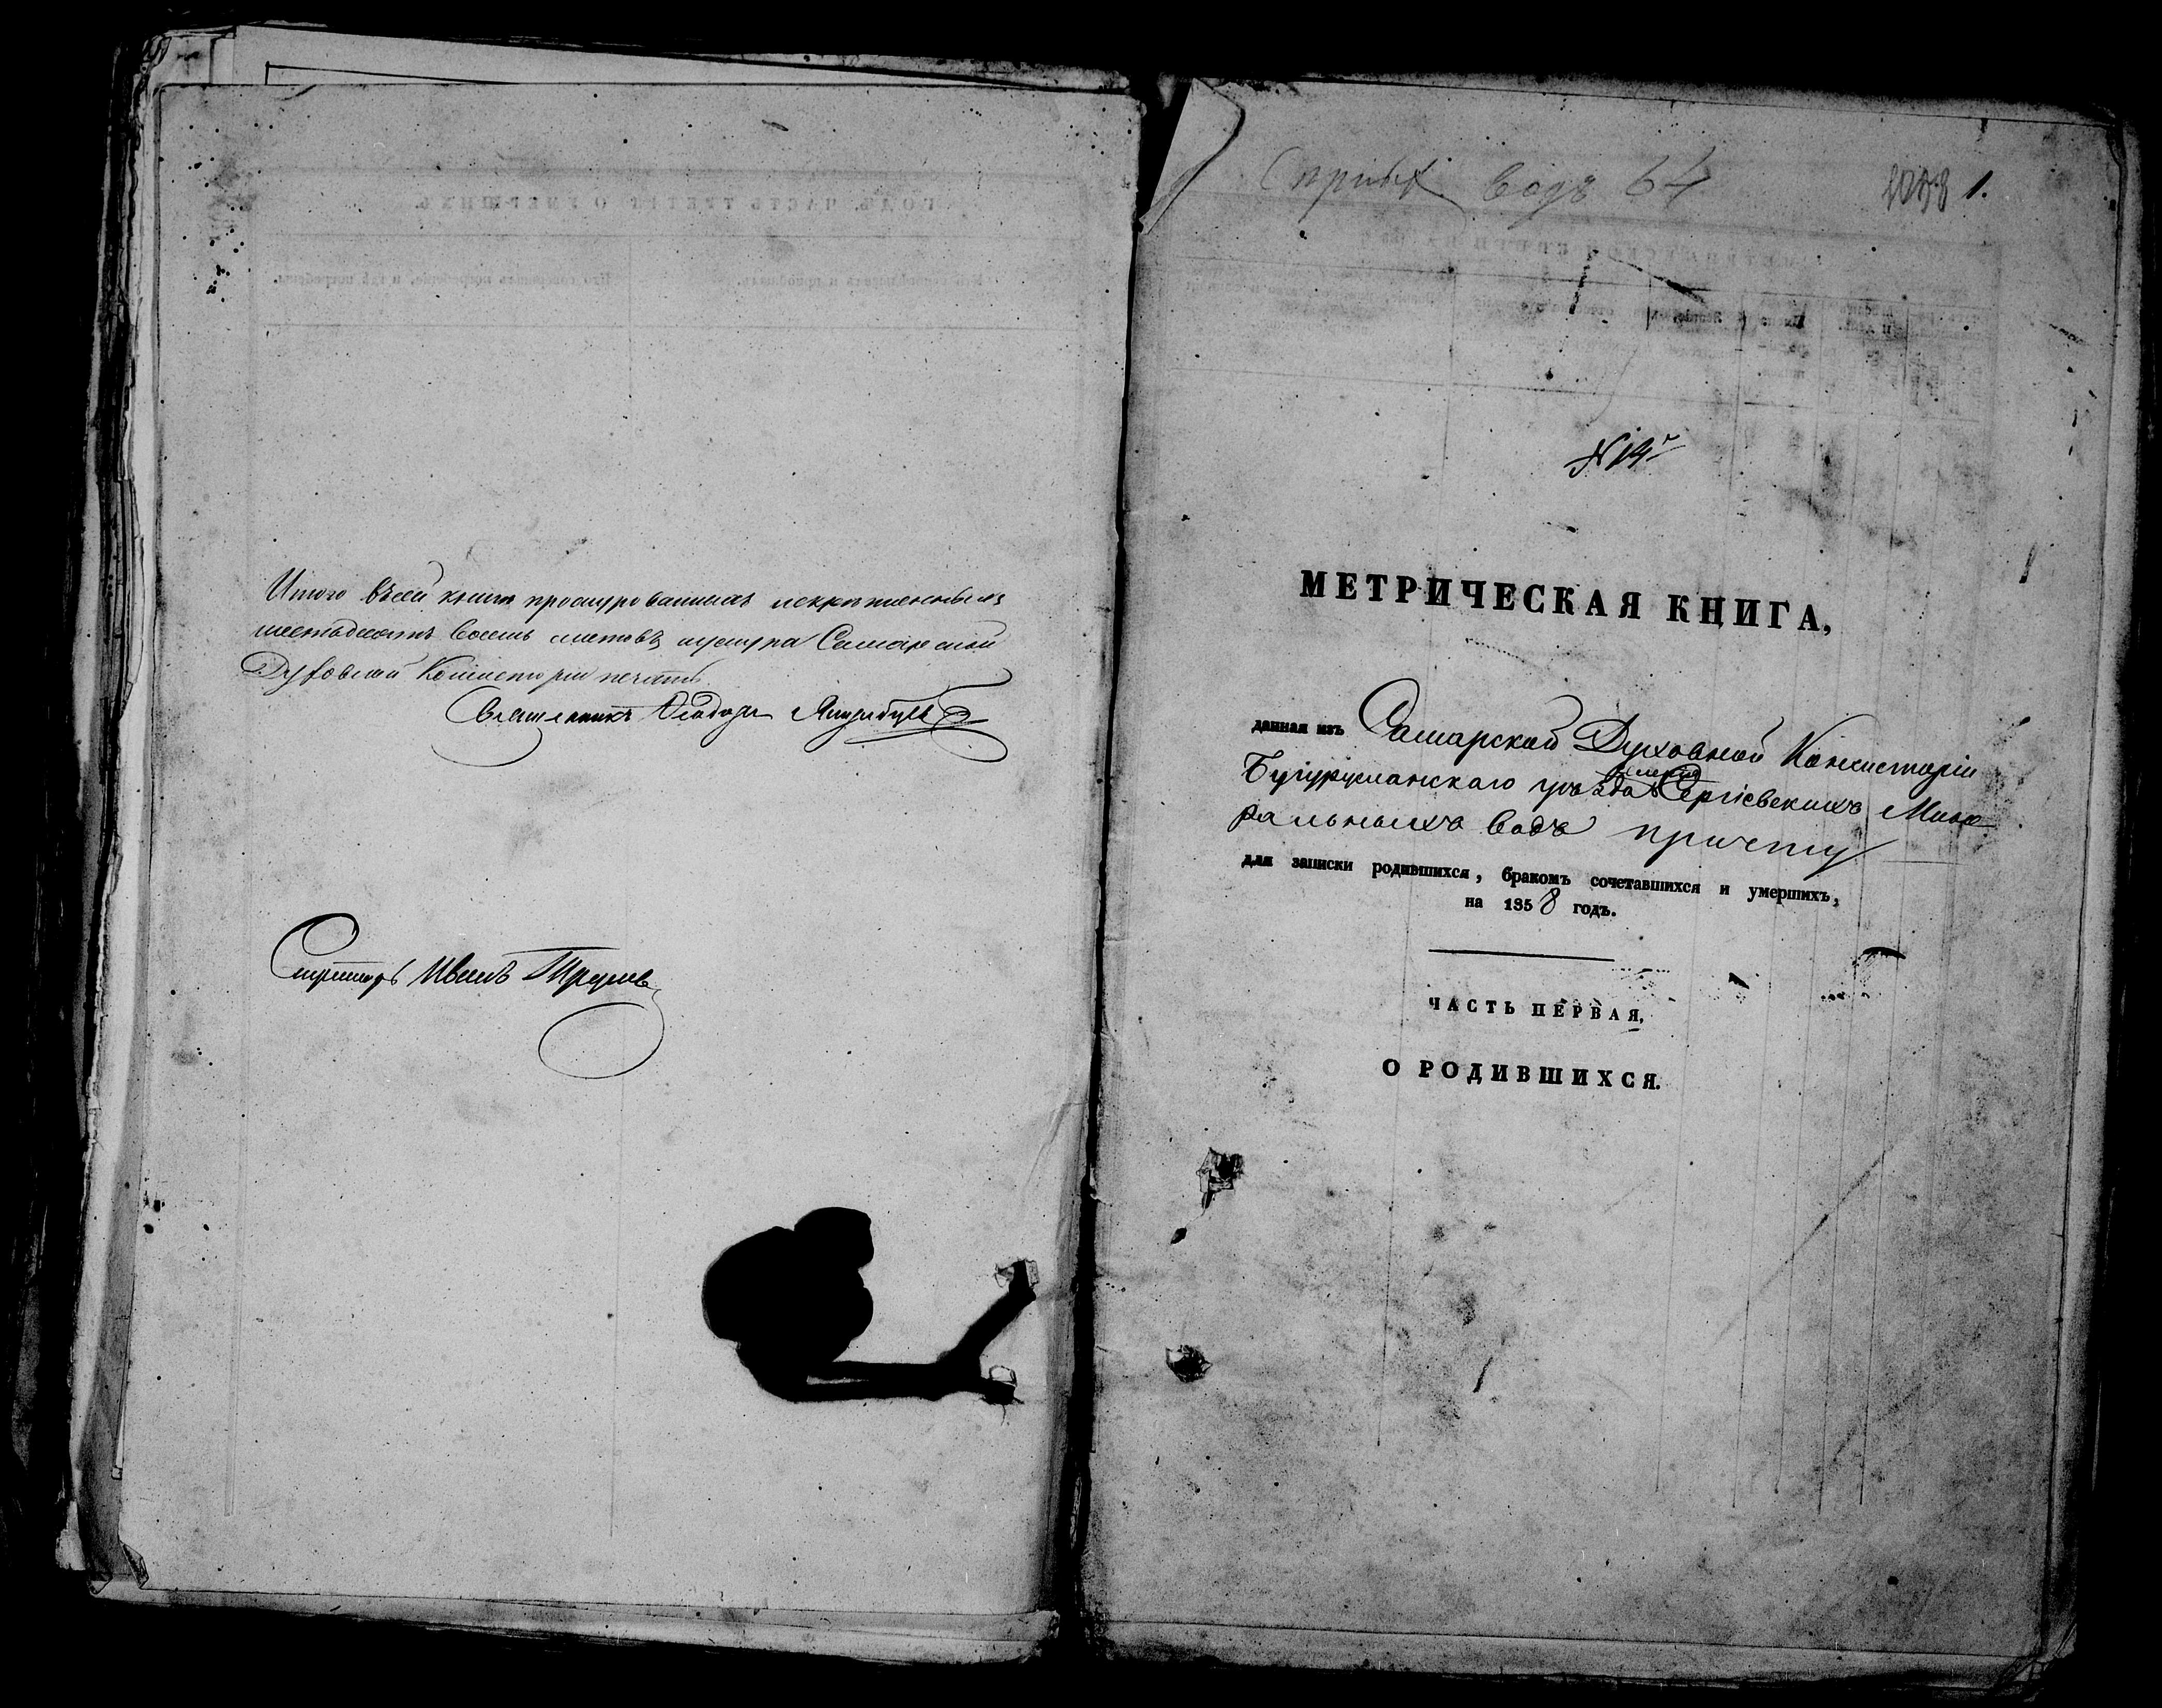 Итого въ сей книге прошнурованныхъ искрепленныхъ
шестьдесятъ восемь листовъ шнура Самарской
Духовной Консисторіи печать
Священникъ Ѳеодоръ
Секретарь Иванъ
водъ 64
1.
МЕТРИЧЕСКАЯ КНИГА,
данная изъ Самарской Духовной Консисторіи
Бугурусланскаго уѣзда Сергіевскихъ Мине
ральныхъ водъ причту
для записки родившихся, бракомъ сочетавшихся и умершихъ,
на 1858 годъ.
ЧАСТЬ ПЕРВАЯ,
О РОДИВШИХСЯ.